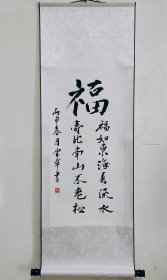 福
福如東海長流水
壽比南山不老松
丙申春月
書